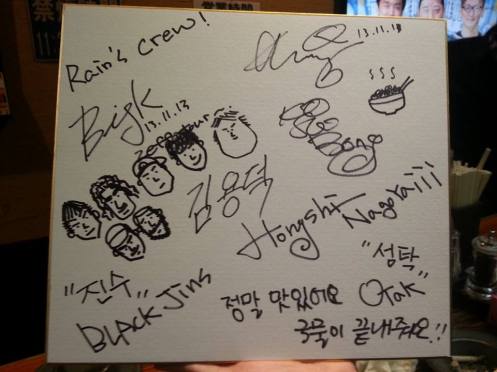 Rain's Crew!
13.11.13
BigK
13.11.13
zepp tour
김용덕
Hongshi Nagotaiii
"진수"
BLACK Jins
"섬탁"
OtaK
정말 맛있어요
국물이 끝내줘요!!